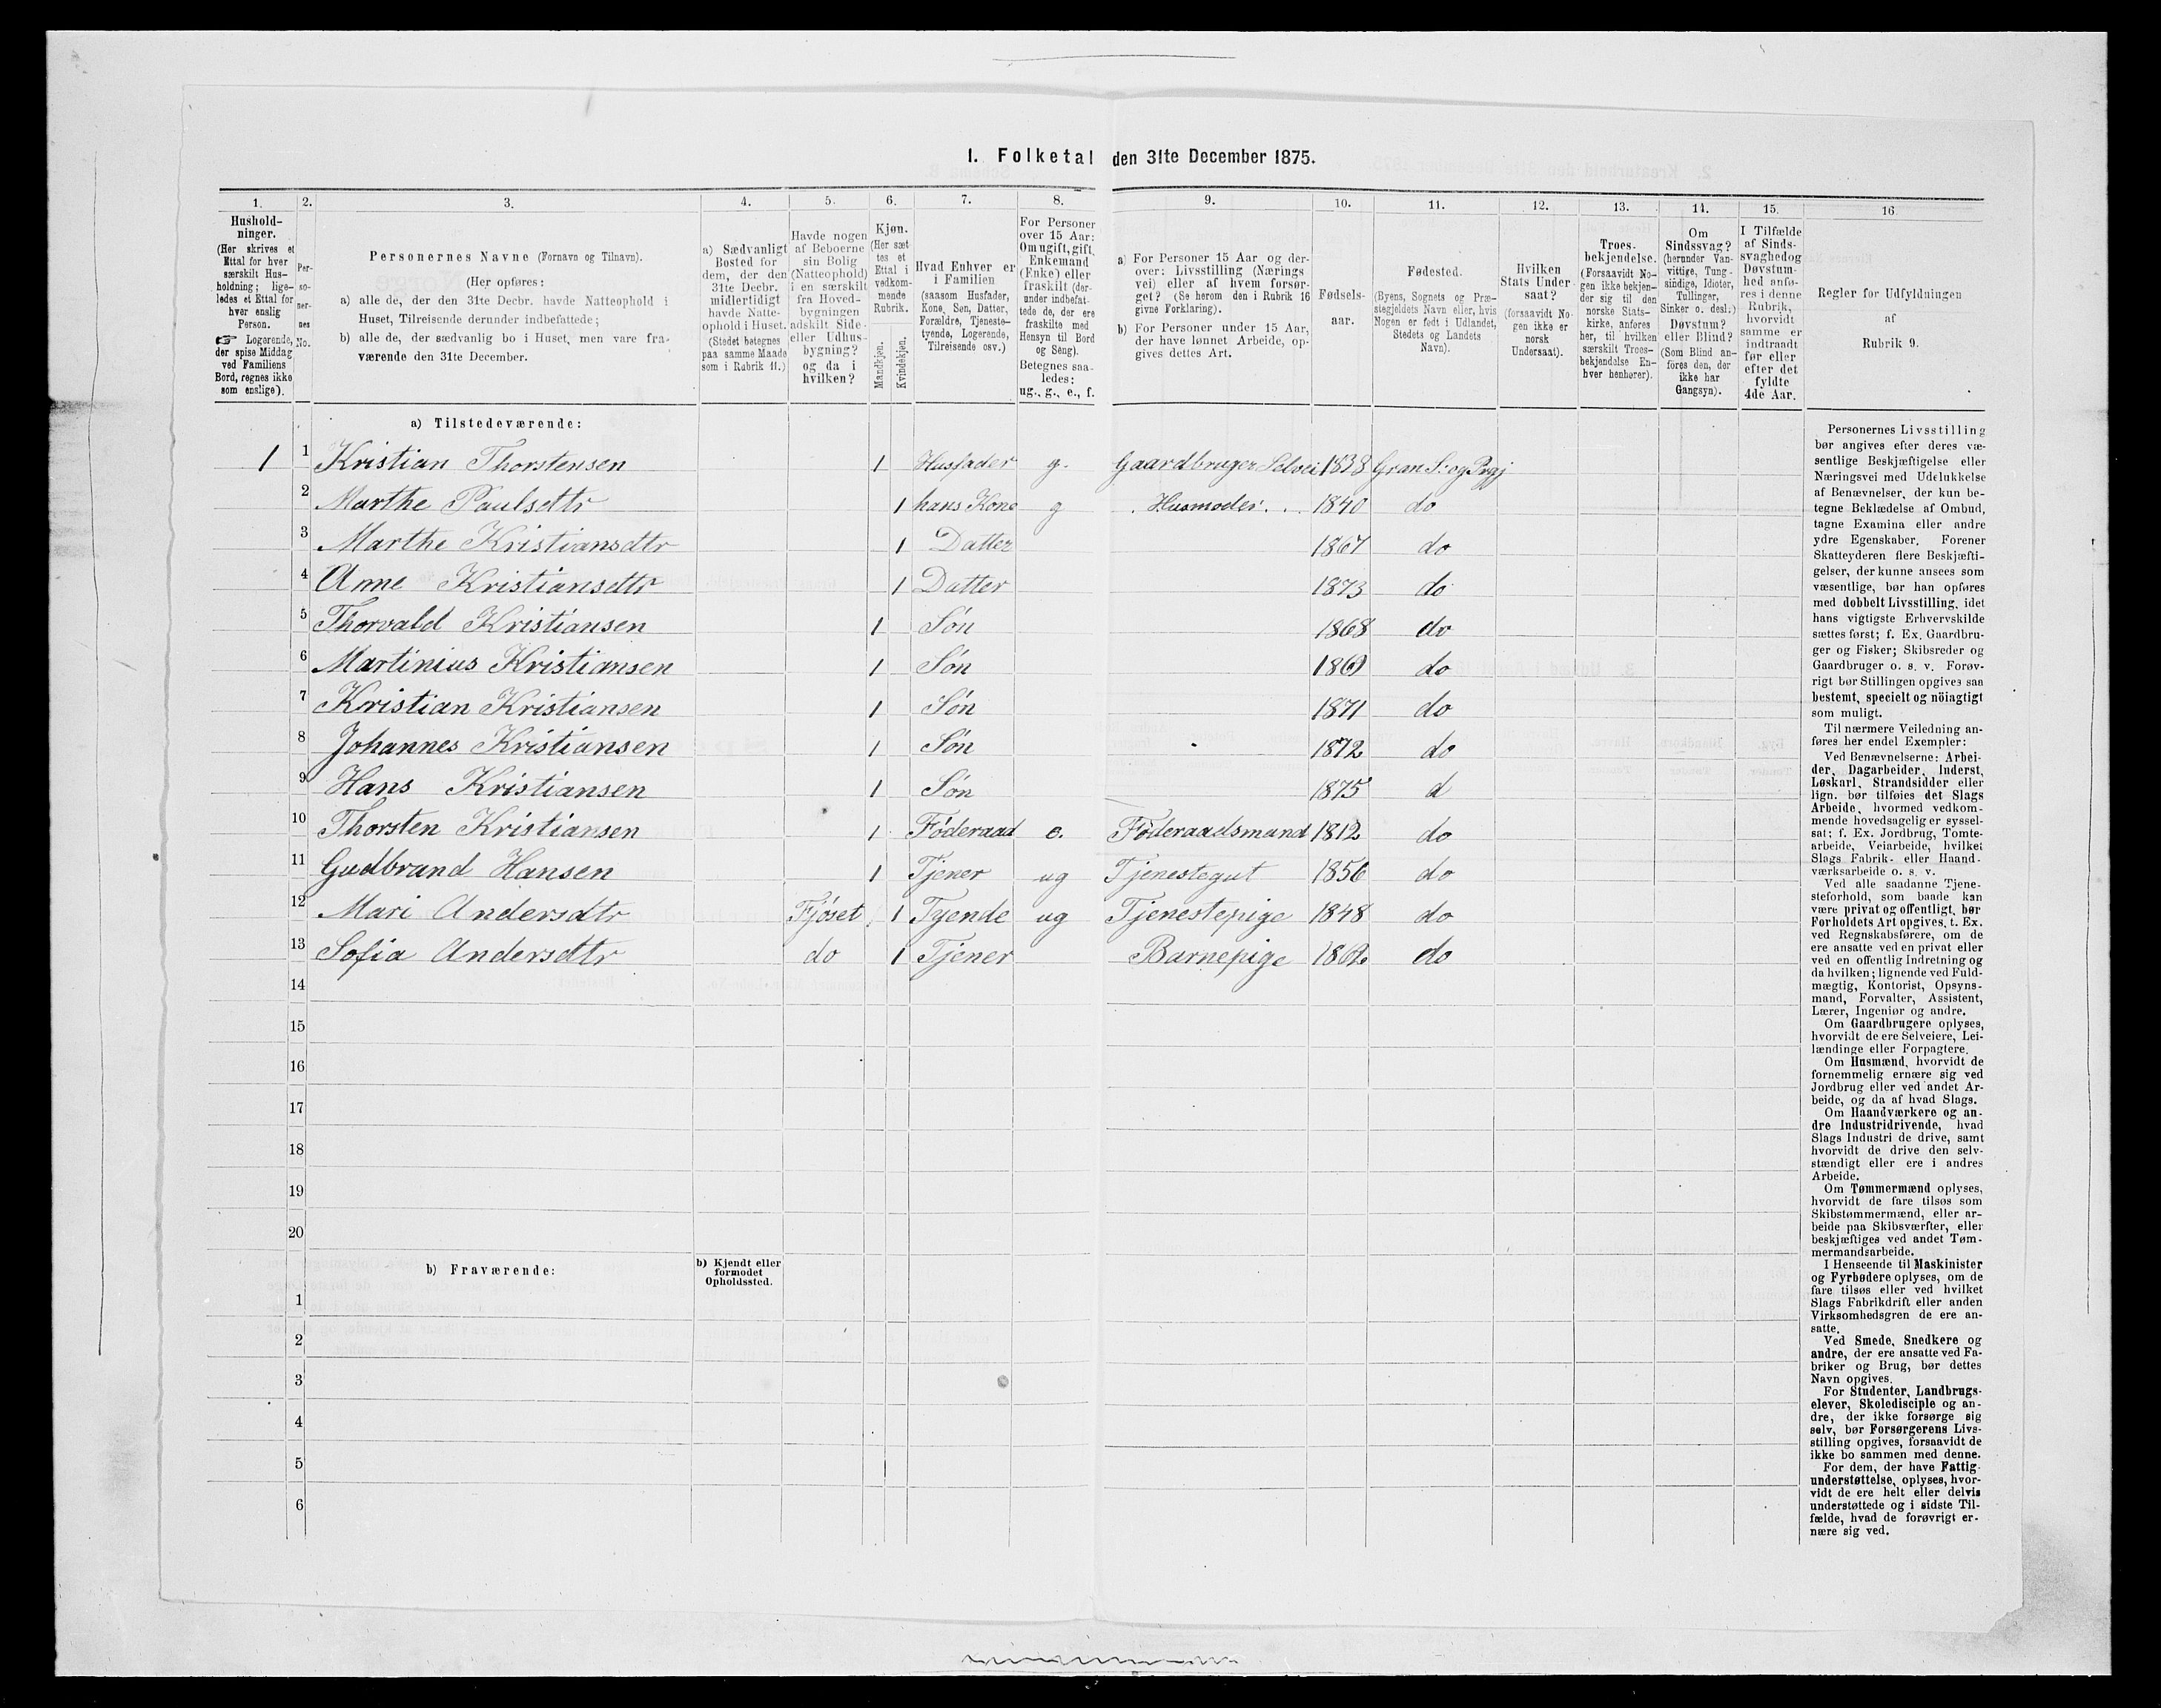 1. Folketal den 31te December 1875.
1. 2. 3. 4. 5. 6. 7. 8. 9. 10. 11. 12. 13. 14. 15. 16.
Hushold-
ninger.
(Her skrives et
Ettal for hver
særskilt Hus-
holdning; lige-
ledes et Ettal for
hver enslig
Person.
☞ Logerende,
der spise Middag
ved Familiens
Bord, regnes ikke
som enslige).
Per-
so-
ner-
nes
No.
Personernes Navne (Fornavn og Tilnavn).
(Her opføres:
a) alle de, der den 31te Decbr. havde Natteophold i
Huset, Tilreisende derunder indbefattede;
b) alle de, der sædvanlig bo i Huset, men vare fra-
værende den 31te December.
a) Sædvanligt
Bosted for
dem, der den
31te Decbr.
midlertidigt
havde Natte-
ophold i Huset.
(Stedet betegnes
paa samme Maade
som i Rubrik 11.)
Havde nogen
af Beboerne
sin Bolig
(Natteophold)
i en særskilt
fra Hoved-
bygningen
adskilt Side-
eller Udhus-
bygning?
og da i
hvilken?
Kjøn.
(Her sæt-
tes et
Ettal i
vedkom-
mende
Rubrik.
Mandkjøn.
Kvindekjøn.
Hvad Enhver er
i Familien
(saasom Husfader,
Kone, Søn, Datter,
Forældre, Tjeneste-
tyende, Logerende,
Tilreisende osv.)
For Personer
over 15 Aar:
Om ugift, gift,
Enkemand
(Enke) eller
fraskilt (der-
under indbefat-
tede de, der ere
fraskilte med
Hensyn til Bord
og Seng).
Betegnes saa-
ledes:
ug., g., e., f.
a) For Personer 15 Aar og der-
over: Livsstilling (Nærings
vei) eller af hvem forsør-
get? (Se herom den i Rubrik 16
givne Forklaring).
b) For Personer under 15 Aar,
der have lønnet Arbeide, op-
gives dettes Art.
Fødsels-
aar.
Fødested.
(Byens, Sognets og Præ-
stegjeldets Navn eller, hvis
Nogen er født i Udlandet,
Stedets og Landets
Navn).
Hvilken
Stats Under
saat?
(forsaavidt No-
gen ikke er
norsk
Undersaat).
Troes-
bekjendelse.
(Forsaavidt No-
gen ikke bekjen-
der sig til den
norske Stats-
kirke, anføres
her, til hvilken
særskilt Troes-
bekjendelse En-
hver henhører).
Om
Sindssvag?
(herunder Van-
vittige, Tung-
sindige, Idioter,
Tullinger,
Sinker o. desl.)
Døvstum?
eller Blind?
(Som Blind an-
føres den, der
ikke har
Gangsyn).
I Tilfælde
af Sinds-
svaghed og
Døvstum-
hed anfø-
res i denne
Rubrik,
hvorvidt
samme er
indtraadt
før eller
efter det
fyldte
4de Aar.
Regler for Udfyldningen
af
Rubrik 9.
a) Tilstedeværende:
1 1 Kristian Thorstensen 1 Husfader g. Gaardbruger Selvei 1838 Gran S: og Prgj
2 Marthe Paulsdtr 1 hans Kone g Husmoder 1840 do
3 Marthe Kristiansdtr 1 Datter 1867 do
4 Anne Kristiansdtr 1 Datter 1873 do
5 Thorvald Kristiansen 1 Søn 1868 do
6 Martinius Kristiansen 1 Søn 1869 do
7 Kristian Kristiansen 1 Søn 1871 do
8 Johannes Kristiansen 1 Søn 1872 do
9 Hans Kristiansen 1 Søn 1875 d
10 Thorsten Kristiansen 1 Föderaad e. Föderaadsmand 1812 do
11 Gudbrand Hansen 1 Tjener ug Tjenestegut 1856 do
12 Mari Andersdtr Fjöset 1 Tyende ug Tjenestepige 1848 do
13 Sofia Andersdtr do 1 Tjener Barnepige do
14
15
16
17
18
19
20
b) Fraværende:
b) Kjendt eller
formodet
Opholdssted.
1
2
3
4
5
6
Personernes Livsstilling
bør angives efter deres væ-
sentlige Beskjæftigelse eller
Næringsvei med Udelukkelse
af Benævnelser, der kun be-
tegne Beklædelse af Ombud,
tagne Examina eller andre
ydre Egenskaber. Forener
Skatteyderen flere Beskjæfti-
gelser, der kunne ansees som
væsentlige, bør han opføres
med dobbelt Livsstilling, idet
hans vigtigste Erhvervskilde
sættes først; f. Ex. Gaardbru-
ger og Fisker; Skibsreder og
Gaardbruger o. s. v. Forøv-
rigt bør Stillingen opgives saa
bestemt, specielt og nöiagtigt
som muligt.
Til nærmere Veiledning an-
føres her endel Exempler:
Ved Benævnelserne: Arbei-
der, Dagarbeider, Inderst,
Løskarl, Strandsidder eller
lign. bør tilføies det Slags
Arbeide, hvormed vedkom-
mende hovedsagelig er syssel-
sat; f. Ex. Jordbrug, Tomte-
arbeide, Veiarbeide, hvilket
Slags Fabrik- eller Haand-
værksarbeide o. s. v.
Ved alle saadanne Tjene-
steforhold, som baade kan
være privat og offentligt, bør
Forholdets Art opgives, t. Ex.
ved Regnskabsførere, om de
ere ansatte ved en privat eller
ved en offentlig Indretning og
da hvilken; lignende ved Fuld-
mægtig, Kontorist, Opsyns-
mand, Forvalter, Assistent,
Lærer, Ingeniør og andre.
Om Gaardbrugere oplyses,
hvorvidt de ere Selveiere, Lei-
lændinge eller Forpagtere.
Om Husmænd, hvorvidt de
fornemmelig ernære sig ved
Jordbrug eller ved andet Ar-
beide, og da af hvad Slags.
Om Haandværkere og an-
dre Industridrivende, hvad
Slags Industri de drive, samt
hvorvidt de drive den selv-
stændigt eller ere i andres
Arbeide.
Om Tømmermænd oplyses,
hvorvidt de fare tilsøs som
Skibstømmermænd, eller ar-
beide paa Skibsværfter, eller
beskjæftiges ved andet Tøm-
mermandsarbeide.
I Henseende til Maskinister
og Fyrbødere oplyses, om de
fare tilsøs eller ved hvilket
Slags Fabrikdrift eller anden
Virksomhedsgren de ere an-
satte.
Ved Smede, Snedkere og
andre, der ere ansatte ved Fa-
briker og Brug, bør dettes
Navn opgives.
For Studenter, Landbrugs-
elever, Skoledisciple og an-
dre, der ikke forsørge sig
selv, bør Forsørgerens Livs-
stilling opgives, forsaavidt de
ikke bo sammen med denne.
For dem, der have Fattig-
understøttelse, oplyses, hvor-
vidt de ere helt eller delvis
understøttede og i sidste Til-
fælde, hvad de forøvrigt er-
nære sig ved.